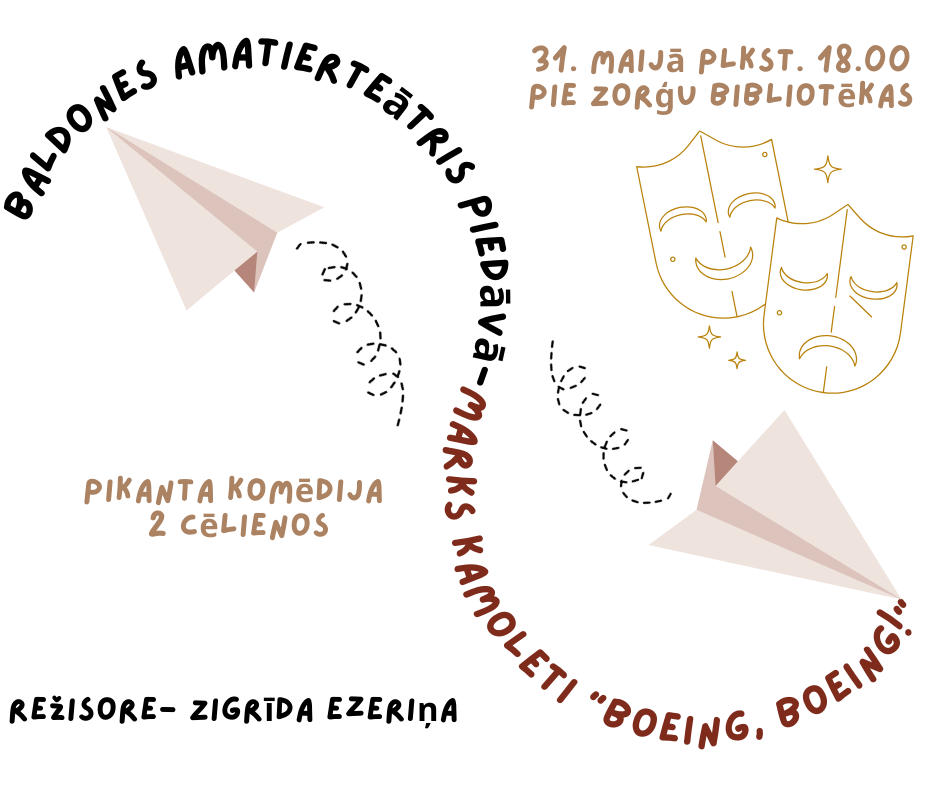 BALDONES AMATIERTEĀTRIS PIEDĀVĀ-MARKS KAMOLETI "BOEING, BOEING!"
31. MAIJĀ PLKST. 18.00
PIE ZORĢU BIBLIOTĒKAS
PIKANTA KOMĒDIJA
2 CĒLIENOS
REŽISORE- ZIGRĪDA EZERIŅA